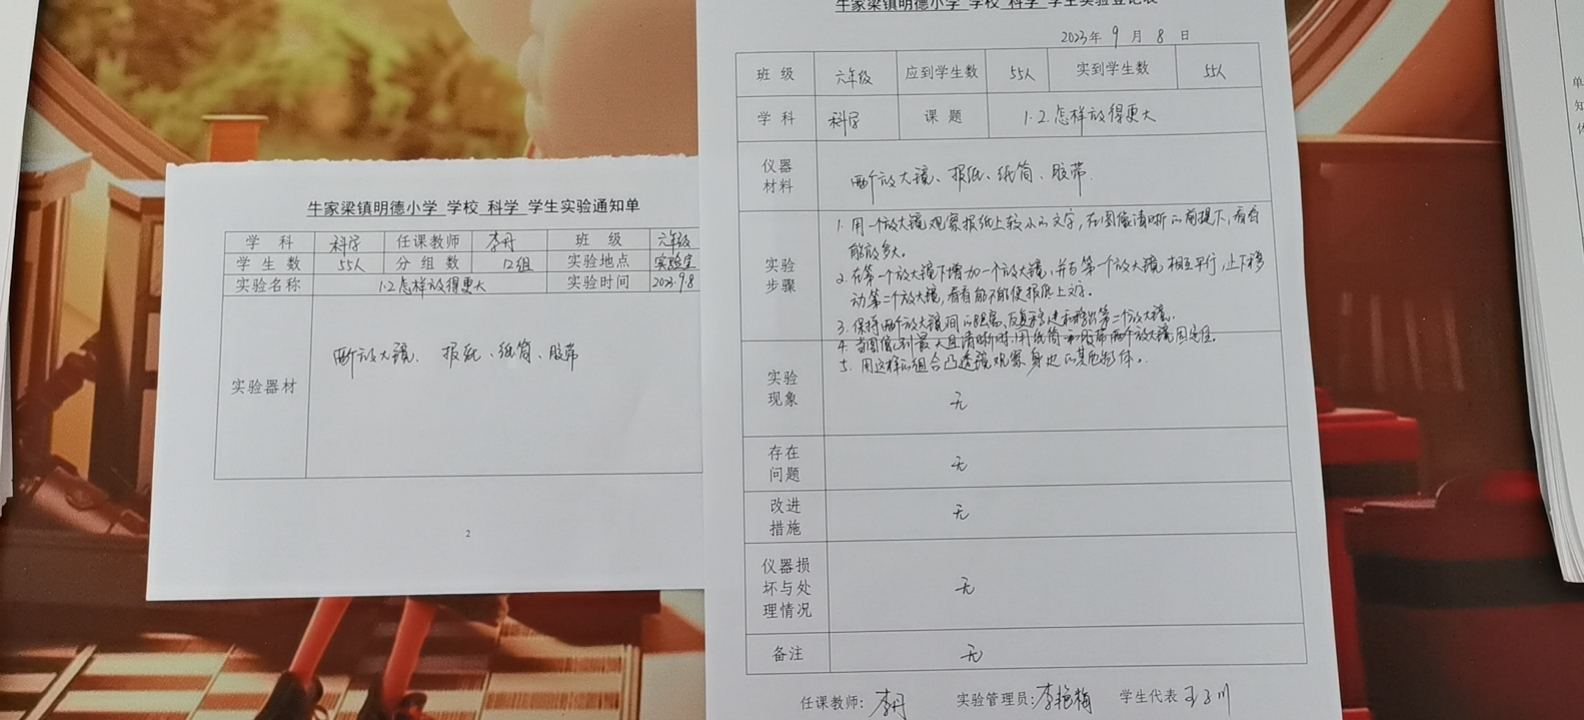 牛家梁镇明德小学 学校 科学 学生实验通知单
学 科 科学 任课教师 李丹 班 级 六年级
学 生 数 55人 分 组 数 12组 实验地点 实验室
实验名称 1.2怎样放得更大 实验时间 2023.9.8
实验器材 两个放大镜、报纸、纸筒、胶带
2
牛家梁镇明德小学 学校 科学 学生实验登记表
2023年 9 月 8 日
班 级 六年级 应到学生数 55人 实到学生数 55人
学 科 科学 课 题 1.2.怎样放得更大
仪器
材料
两个放大镜、报纸、纸筒、胶带.
实验
步骤
1. 用一个放大镜观察报纸上较小的文字,在图像清晰的前提下,看看
能放多大。
2. 在第一个放大镜下增加一个放大镜,并与第一个放大镜相互平行,上下移
动第二个放大镜,看看能不能使报纸上文字。
3. 保持两个放大镜间的距离,反复移进和移出第二个放大镜.
4. 当图像达到最大且清晰时,用纸筒和胶带两个放大镜固定住。
5. 用这样的组合凸透镜观察身边的其他物体。
实验
现象
无
存在
问题
无
改进
措施
无
仪器损
坏与处
理情况
无
备注 无
任课教师: 李丹 实验管理员: 李艳梅 学生代表